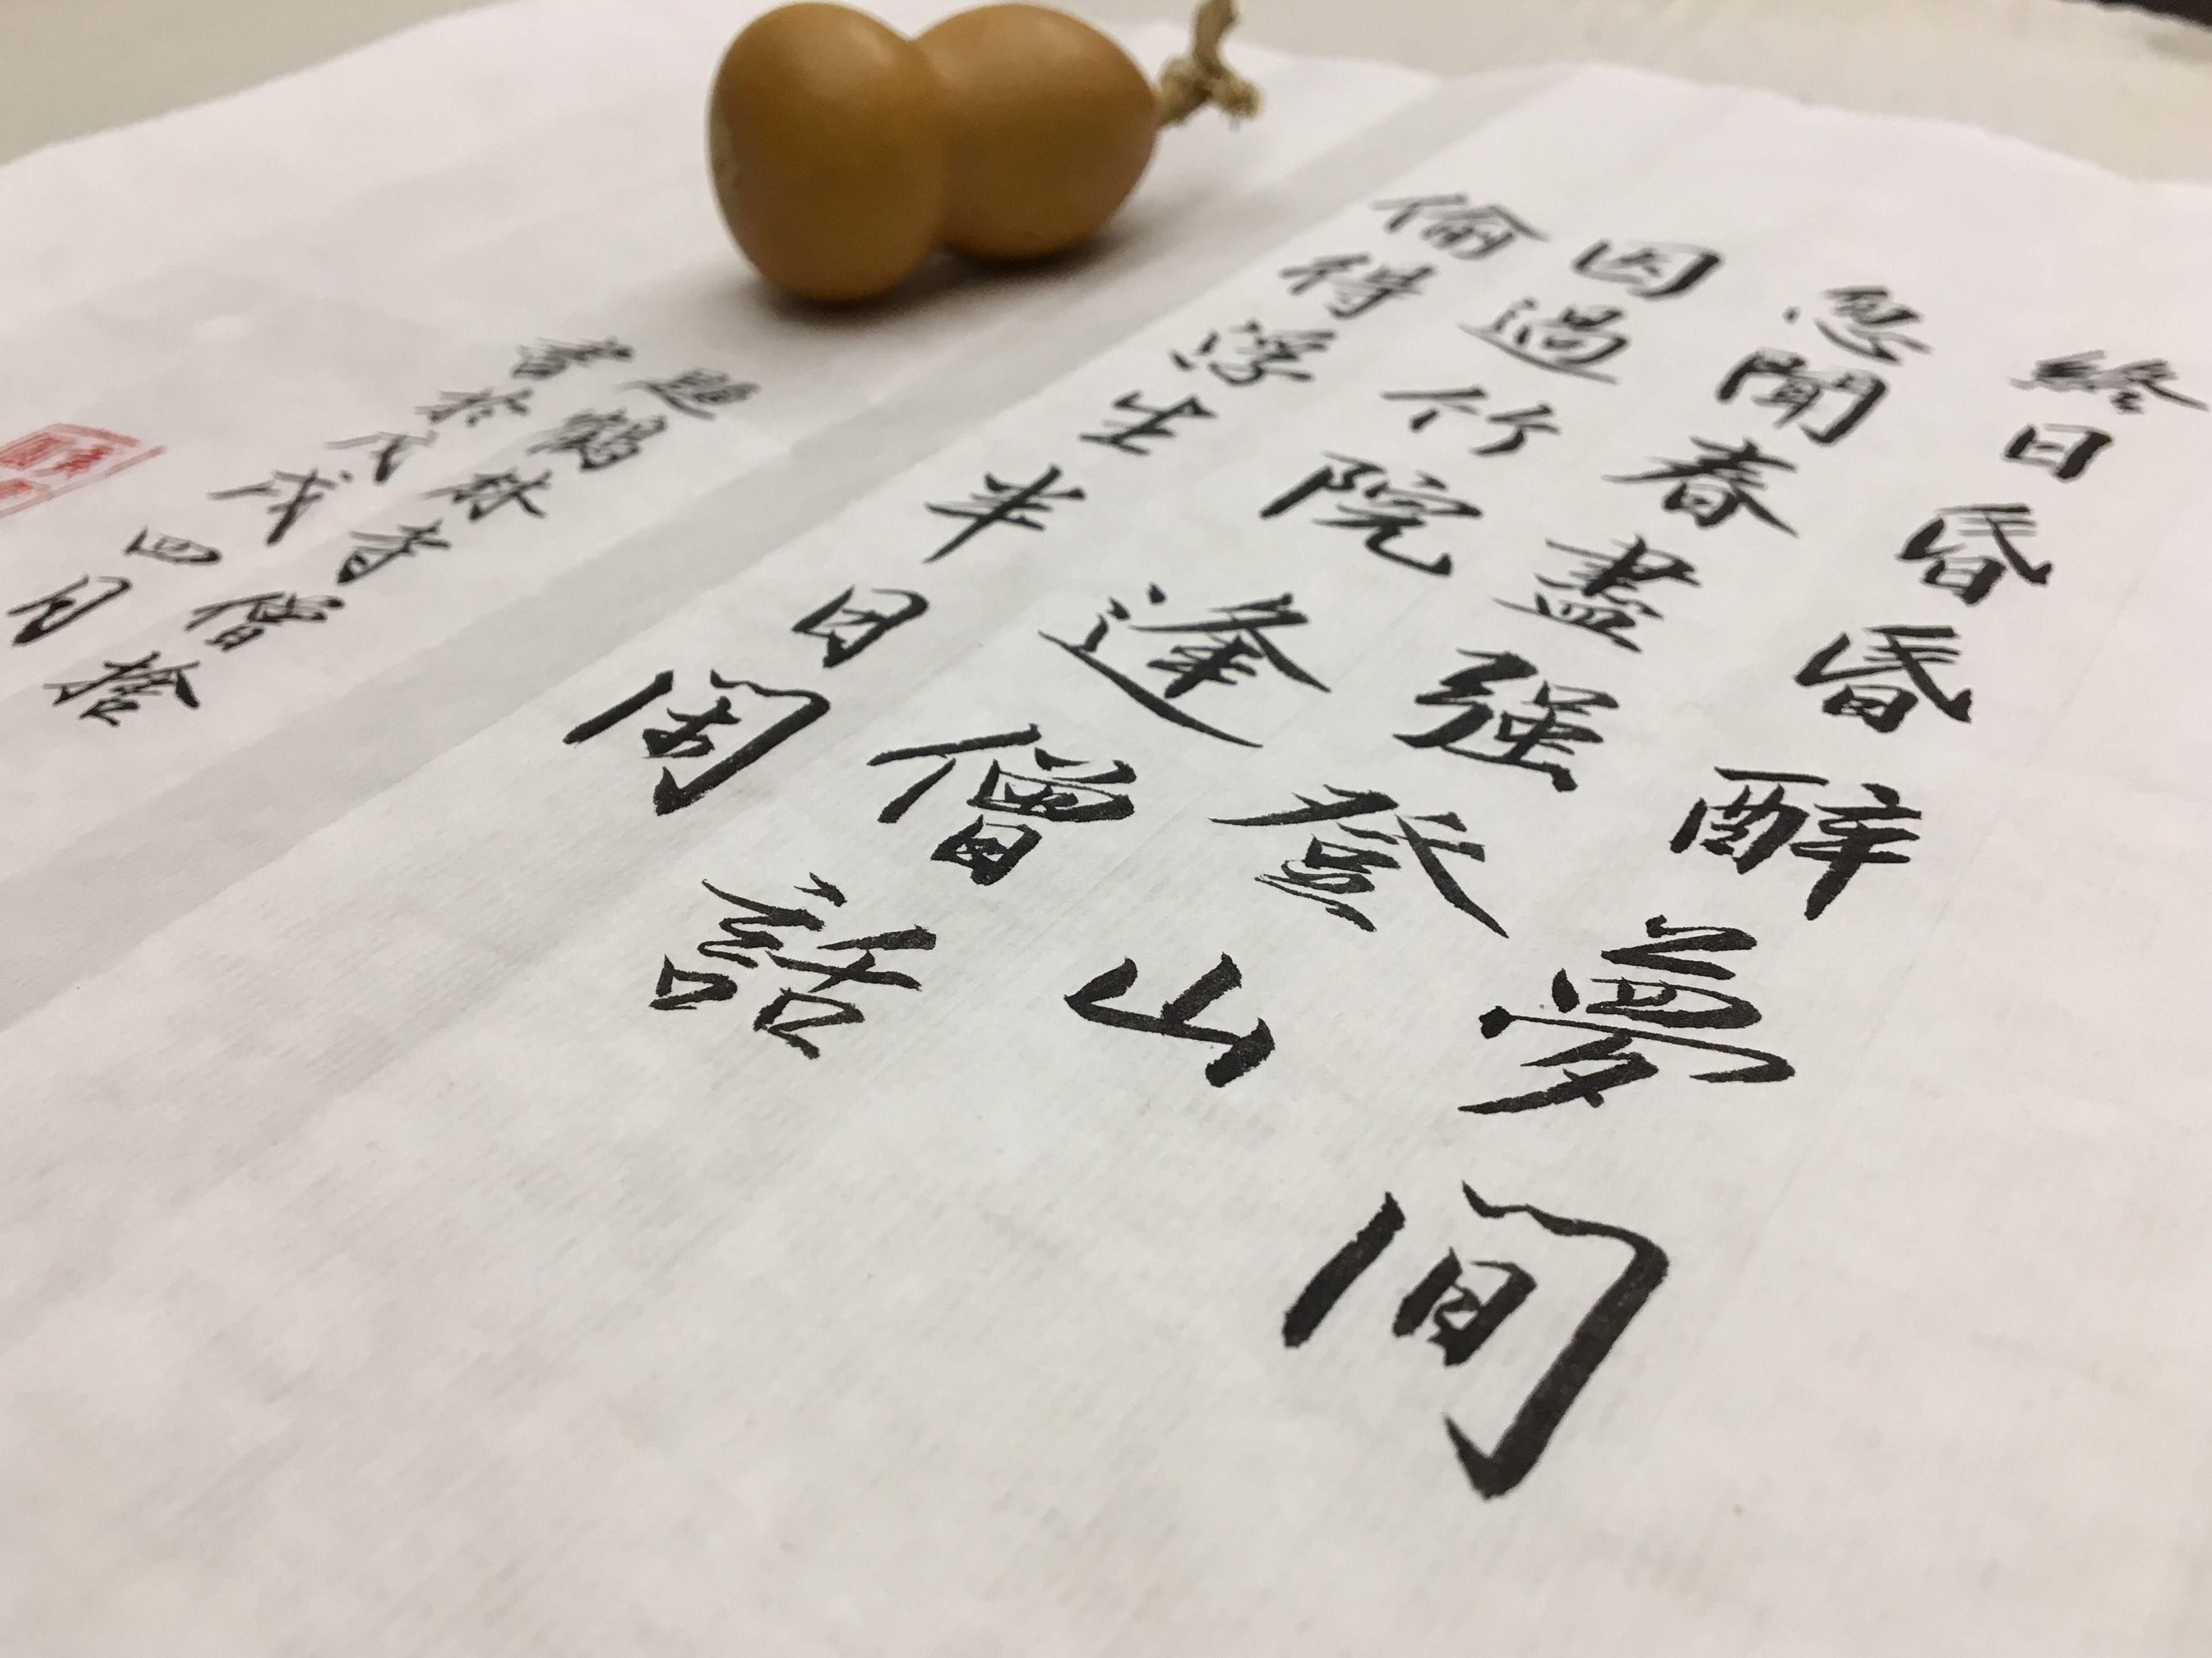 終日昏昏醉夢間
忽聞春盡强登山
因過竹院逢僧話
偷得浮生半日閑
題鶴林寺僧捨
書於戊戌四月